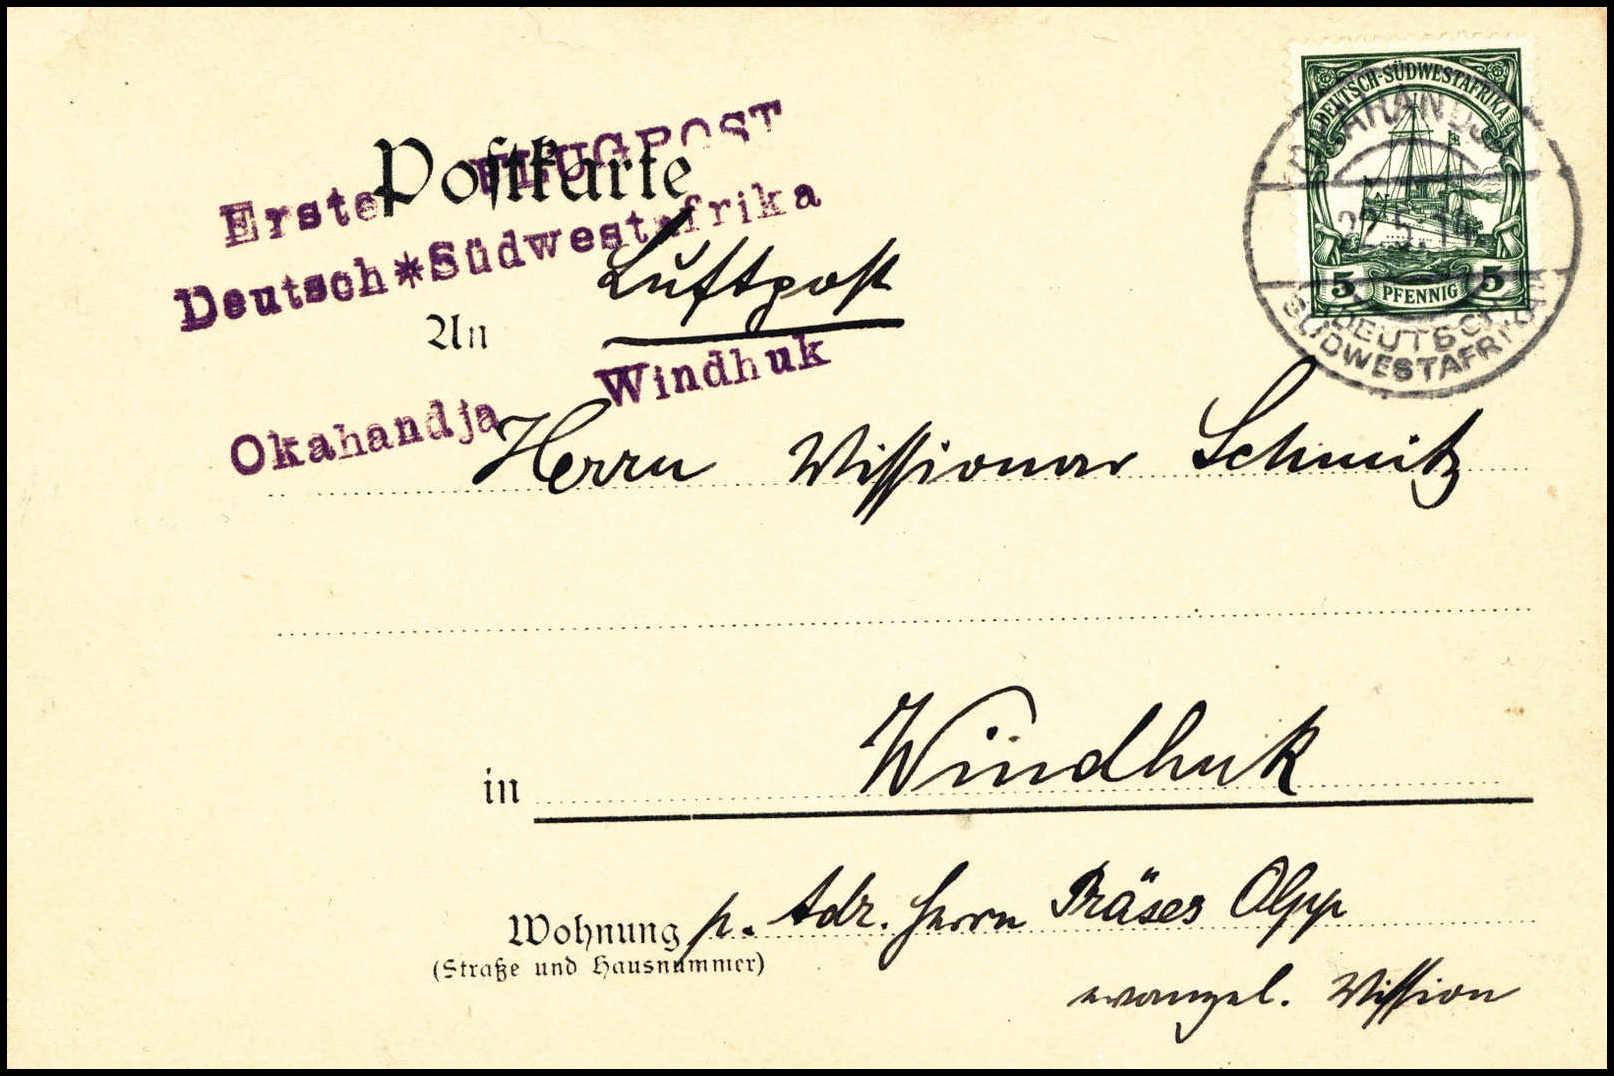 Postkarte
Erste FLUGPOST
Deutsch*Südwestafrika
Luftpost
An
Okahandja Windhuk
DEUTSCH-SÜDWESTAFRIKA
5 PFENNIG 5
OKAHANDJA
22.5.14
DEUTSCH-
SÜDWESTAFRIKA
Herrn Missionar Schmitz
in Windhuk
Wohnung p. Adr. Herrn Präses Olpp
(Straße und Hausnummer)
evangel. Mission